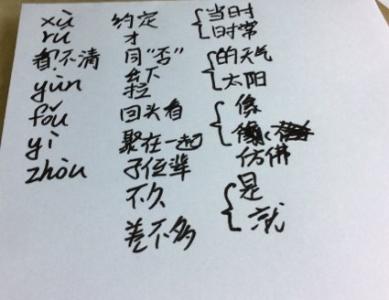 xù
rú
不清
yùn
fǒu
yì
zhòu
约定
才
同“否”
拉
回头看
聚在一起
不久
差不多
当时
时常
的天气
太阳
像
仿佛
是
就